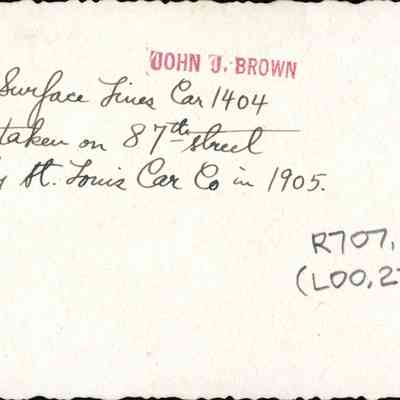 JOHN J. BROWN
Surface Lines Car 1404
taken on 87th street
St. Louis Car Co in 1905.
R707,
(L00,2